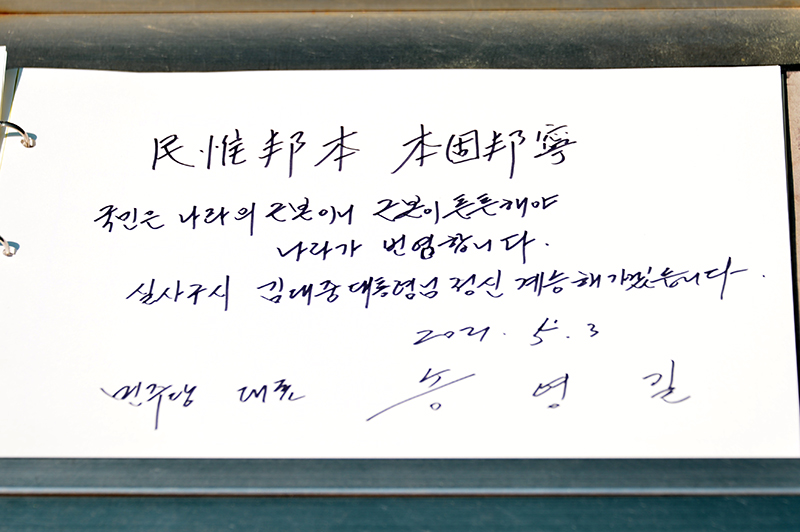 民惟邦本 本固邦寧
국민은 나라의 근본이니 근본이 튼튼해야
나라가 번영합니다.
실사구시 김대중대통령님 정신 계승해가겠습니다.
2021. 5. 3
민주당 대표 송영길